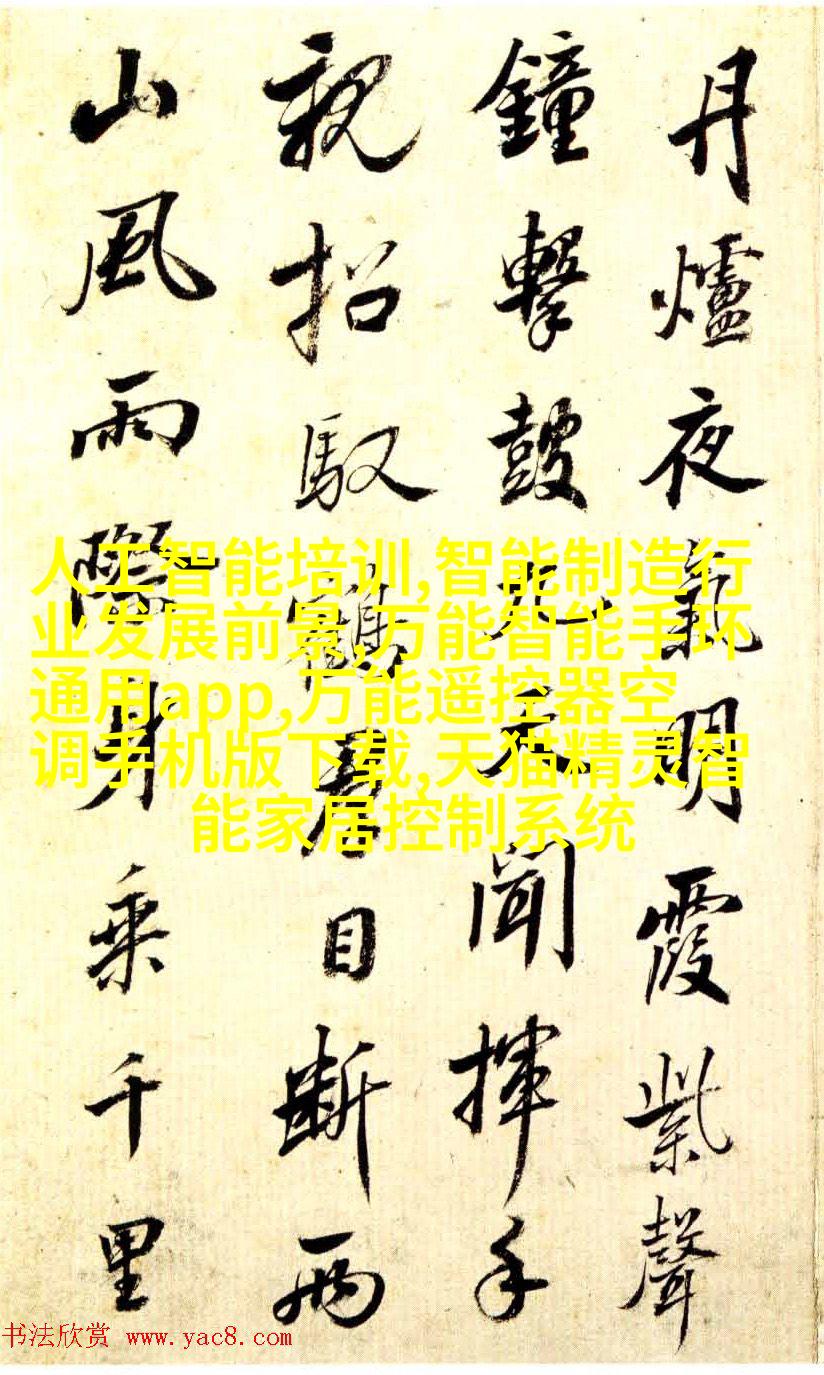 丹爐夜氣明霞紫聲
鐘擊皷九天聞揮手
親招馭鶴君目斷兩
山風雨際身乘千里
人工智能培训,智能制造行
业发展前景,万能智能手环
通用app,万能遥控器空
调手机版下载,天猫精灵智
能家居控制系统
书法欣赏 www.yac8.com